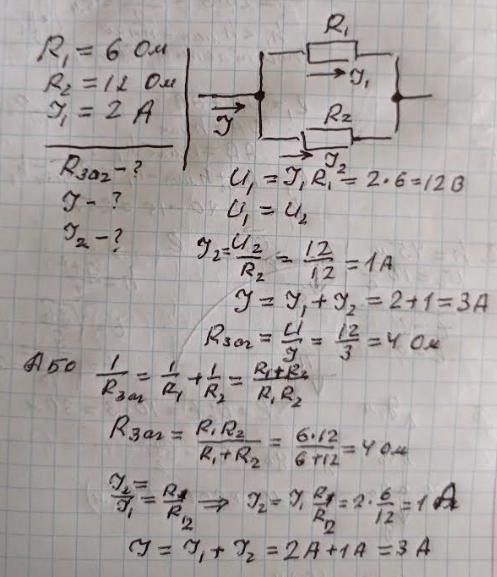 R₁ = 6 Ом
R₂ = 12 Ом
I₁ = 2 А
Rзаг - ?
I - ?
I₂ - ?
R₁
I₁
I
R₂
I₂
U₁ = I₁R₁ = 2·6 = 12В
U₁ = U₂
I₂ = U₂/R₂ = 12/12 = 1А
I = I₁ + I₂ = 2+1 = 3А
Rзаг = U/I = 12/3 = 4 Ом
Або 1/Rзаг = 1/R₁ + 1/R₂ = (R₁+R₂)/(R₁R₂)
Rзаг = R₁R₂/(R₁+R₂) = 6·12/(6+12) = 4 Ом
I₂/I₁ = R₁/R₂ ⇒ I₂ = I₁ R₁/R₂ = 2·6/12 = 1 А
I = I₁ + I₂ = 2А+1А = 3 А